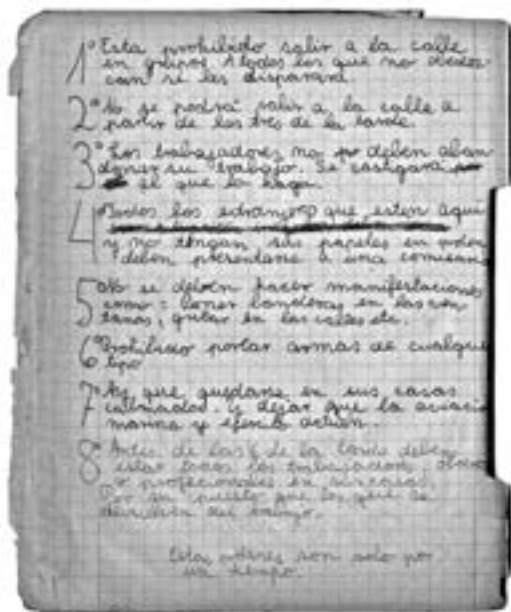 1° Esta prohibido salir a la calle
en grupos. A todos los que no obedes-
can se les disparará.
2° No se podrá salir a la calle a
partir de las tres de la tarde.
3° Los trabajadores no deben aban
donar su trabajo. Se castigara
el que lo haga.
4° Todos los extranjeros que esten aqui
y no tengan sus papeles en orden
deben presentarse a una comisari
5° No se deben hacer manifestaciones
como: poner banderas en las ven
tanas, gritar en las calles etc.
6° Prohibido portar armas de cualquie
tipo
7° Ay que quedarse en sus casas
y dejar que la aviacio
marina y ejercito actúan.
8° Antes de las 6 de la tarde deben
estar todos los trabajadores, obrero
y profesionales en sus casas.
Por su puesto que los que se
del trabajo.
Estas ordenes son solo por
un tiempo.